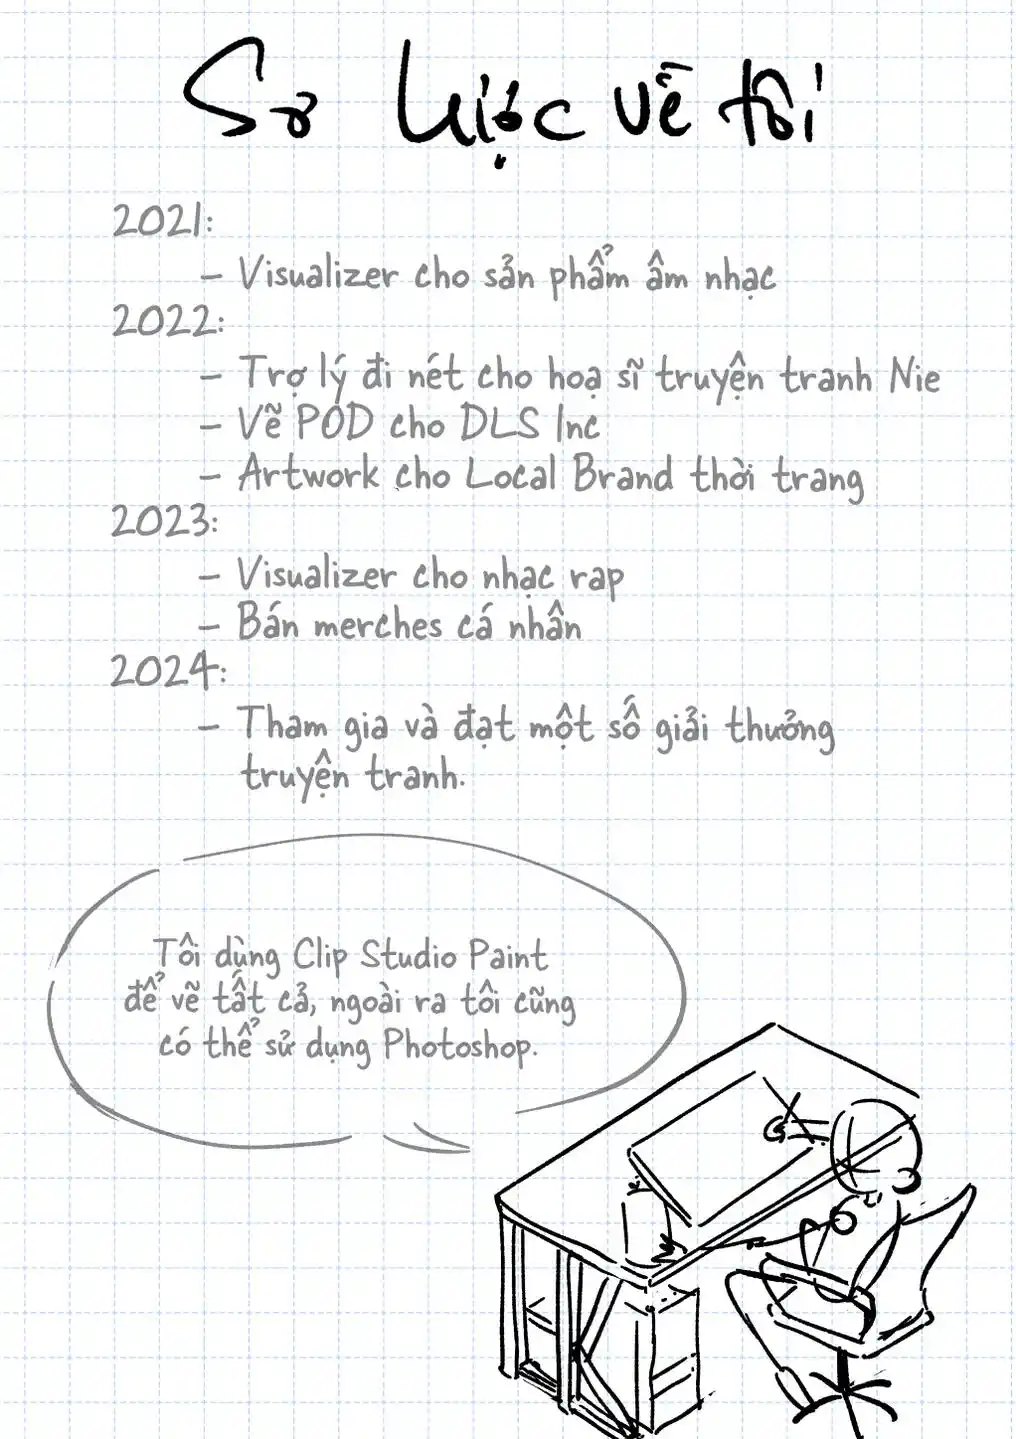 Sơ lược về tôi
2021:
- Visualizer cho sản phẩm âm nhạc
2022:
- Trợ lý đi nét cho hoạ sĩ truyện tranh Nie
- Vẽ POD cho DLS Inc
- Artwork cho Local Brand thời trang
2023:
- Visualizer cho nhạc rap
- Bán merches cá nhân
2024:
- Tham gia và đạt một số giải thưởng
truyện tranh.
Tôi dùng Clip Studio Paint
để vẽ tất cả, ngoài ra tôi cũng
có thể sử dụng Photoshop.